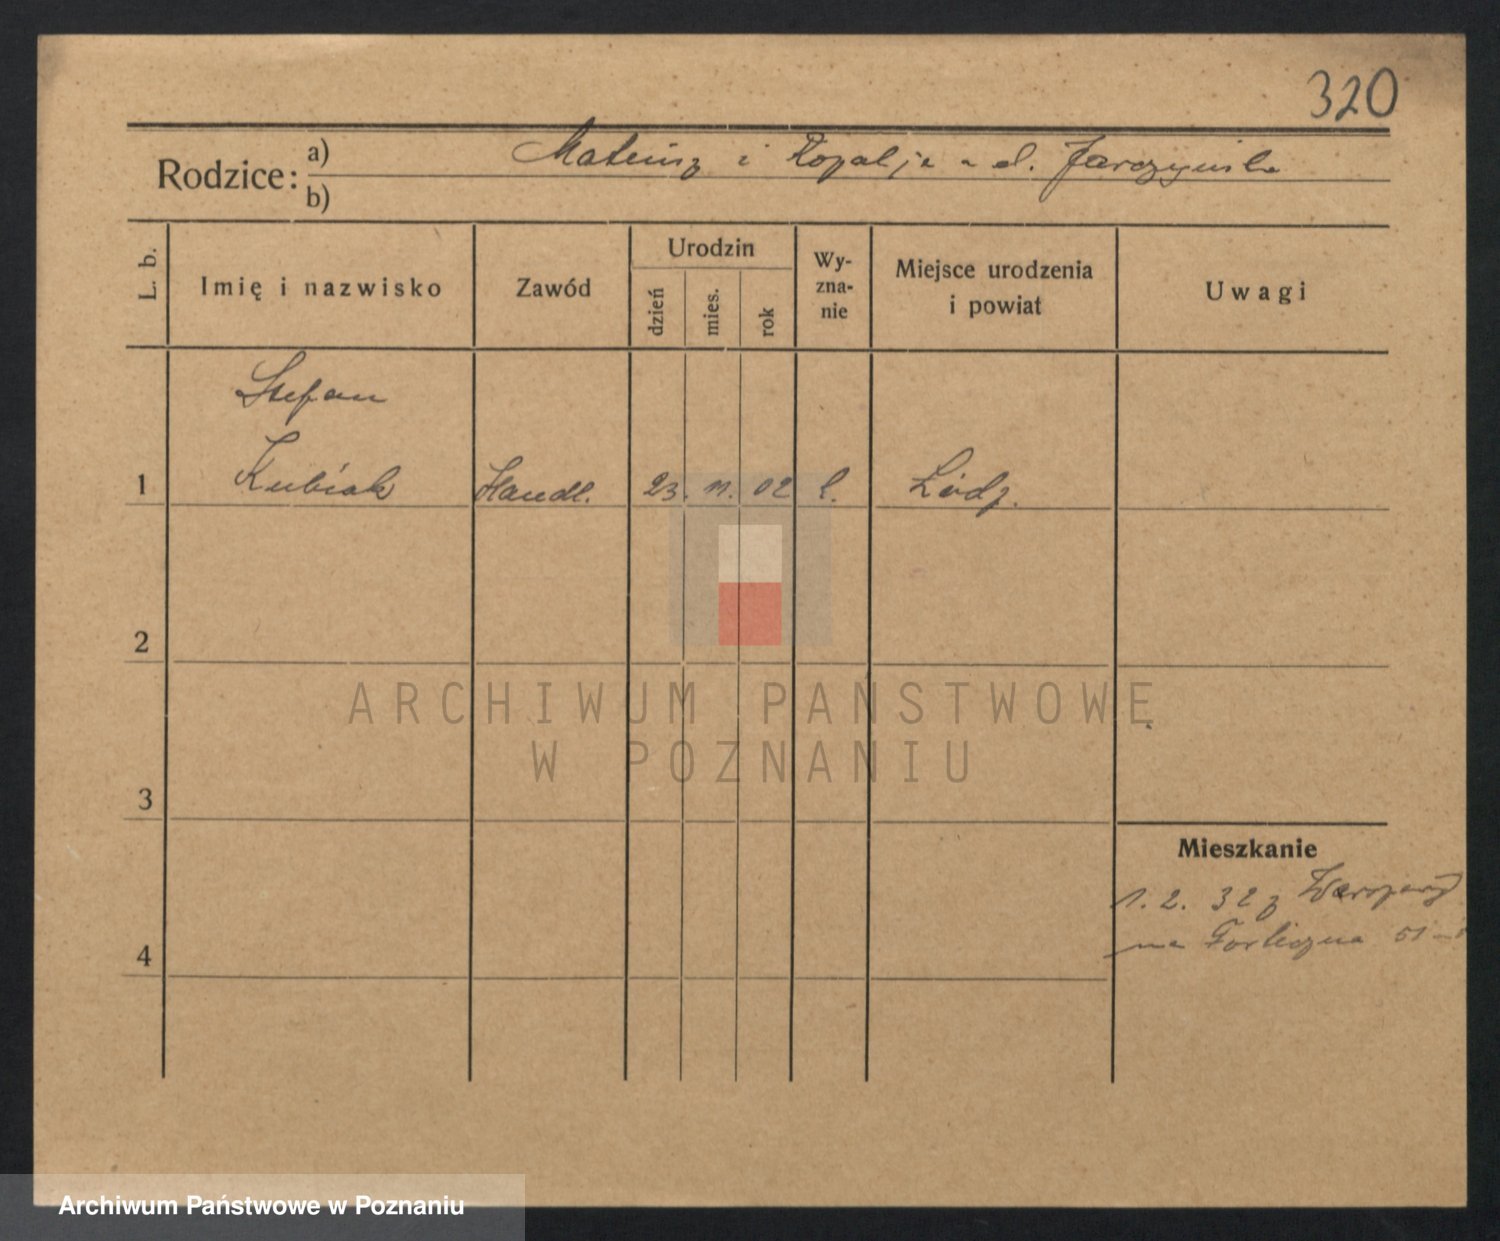 320
Rodzice: a) Mateusz i Rozalja z d. Jarczyńska
b)
L. b.
Imię i nazwisko
Zawód
Urodzin
dzień
mies.
rok
Wy-
zna-
nie
Miejsce urodzenia
i powiat
Uwagi
Stefan
1 Kubiak Handl. 23. 11. 02 Łódź.
2
3
4
Mieszkanie
1. 2. 32 z
na 51
ARCHIWUM PAŃSTWOWE
W POZNANIU
Archiwum Państwowe w Poznaniu